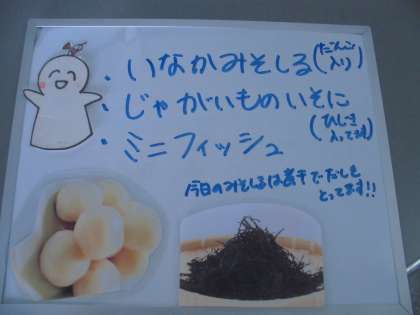 ・いなかみそしる(だんご入り)
・じゃがいものいそに(ひじき入ってます)
・ミニフィッシュ
今日のみそしるは煮干でだしを
とってます!!